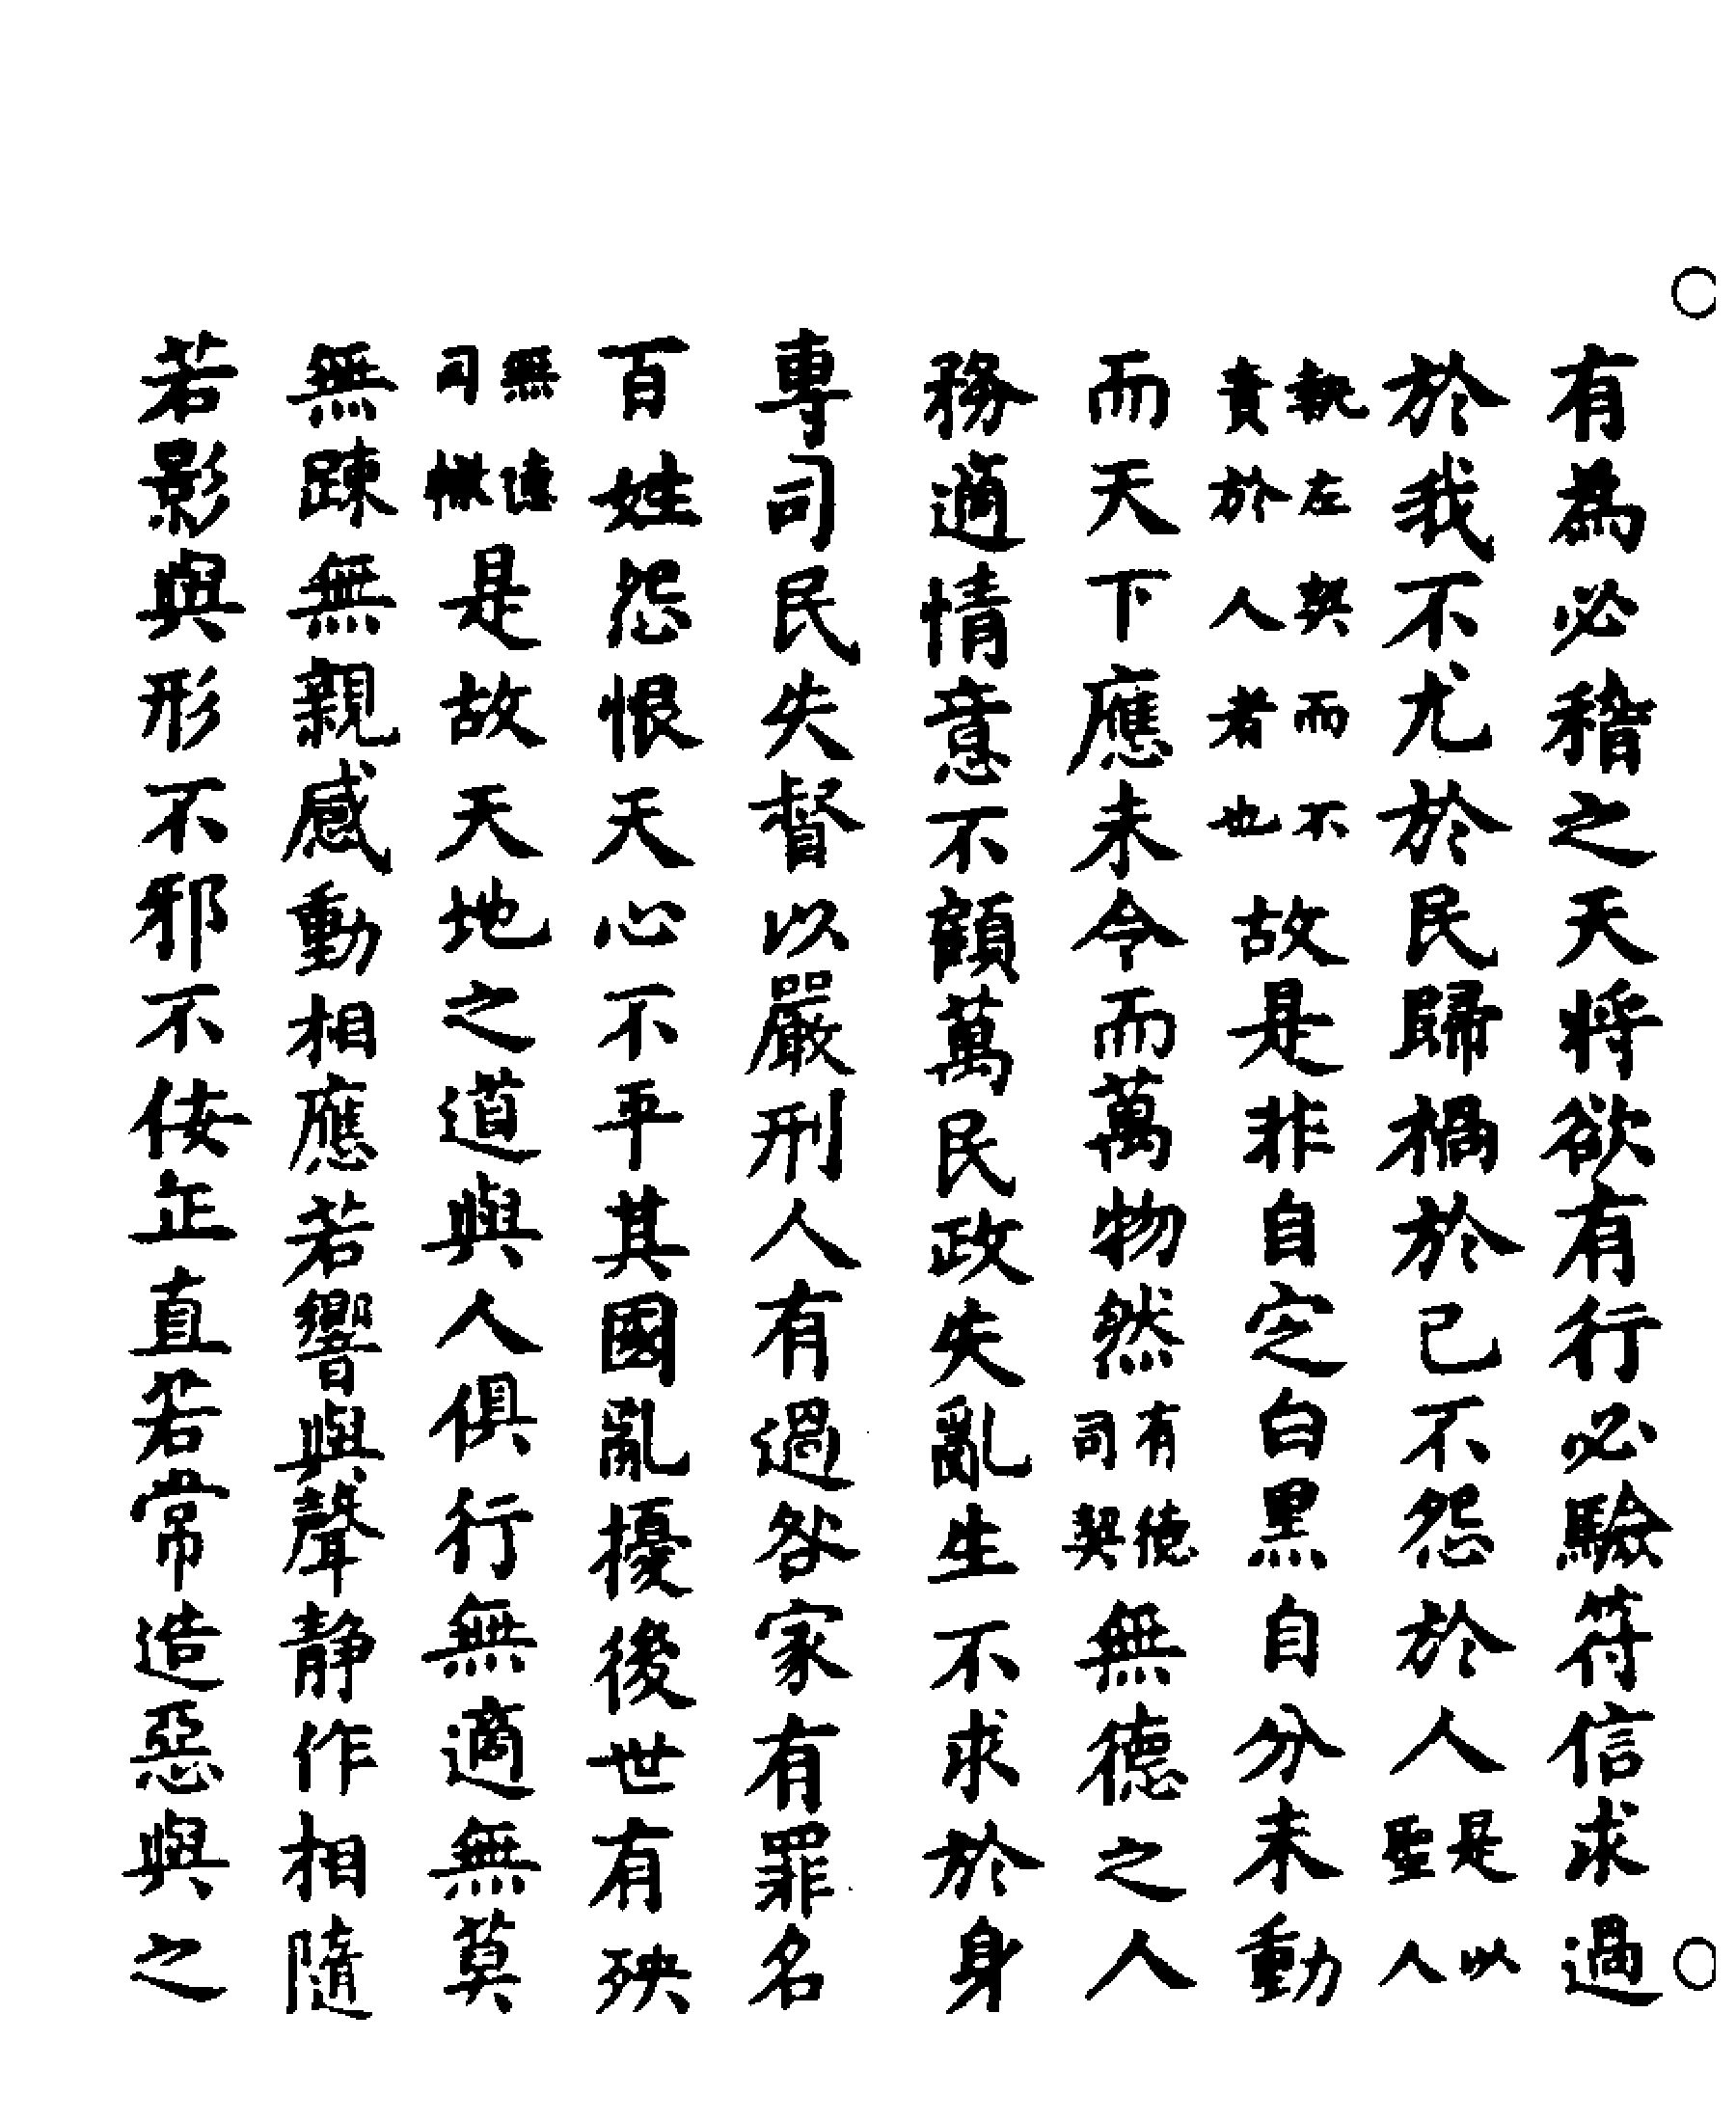 有為必稽之天將欲有行必驗符信求過
於我不尤於民歸禍於己不怨於人是以聖人
執左契而不責於人者也故是非自定白黑自分未動
而天下應未令而萬物然有德司契無德之人
務適情意不顧萬民政失亂生不求於身
專司民失督以嚴刑人有過咎家有罪名
百姓怨恨天心不平其國亂擾後世有殃
無德司轍是故天地之道與人俱行無適無莫
無踈無親感動相應若響與聲靜作相隨
若影與形不邪不佞正直若常造惡與之